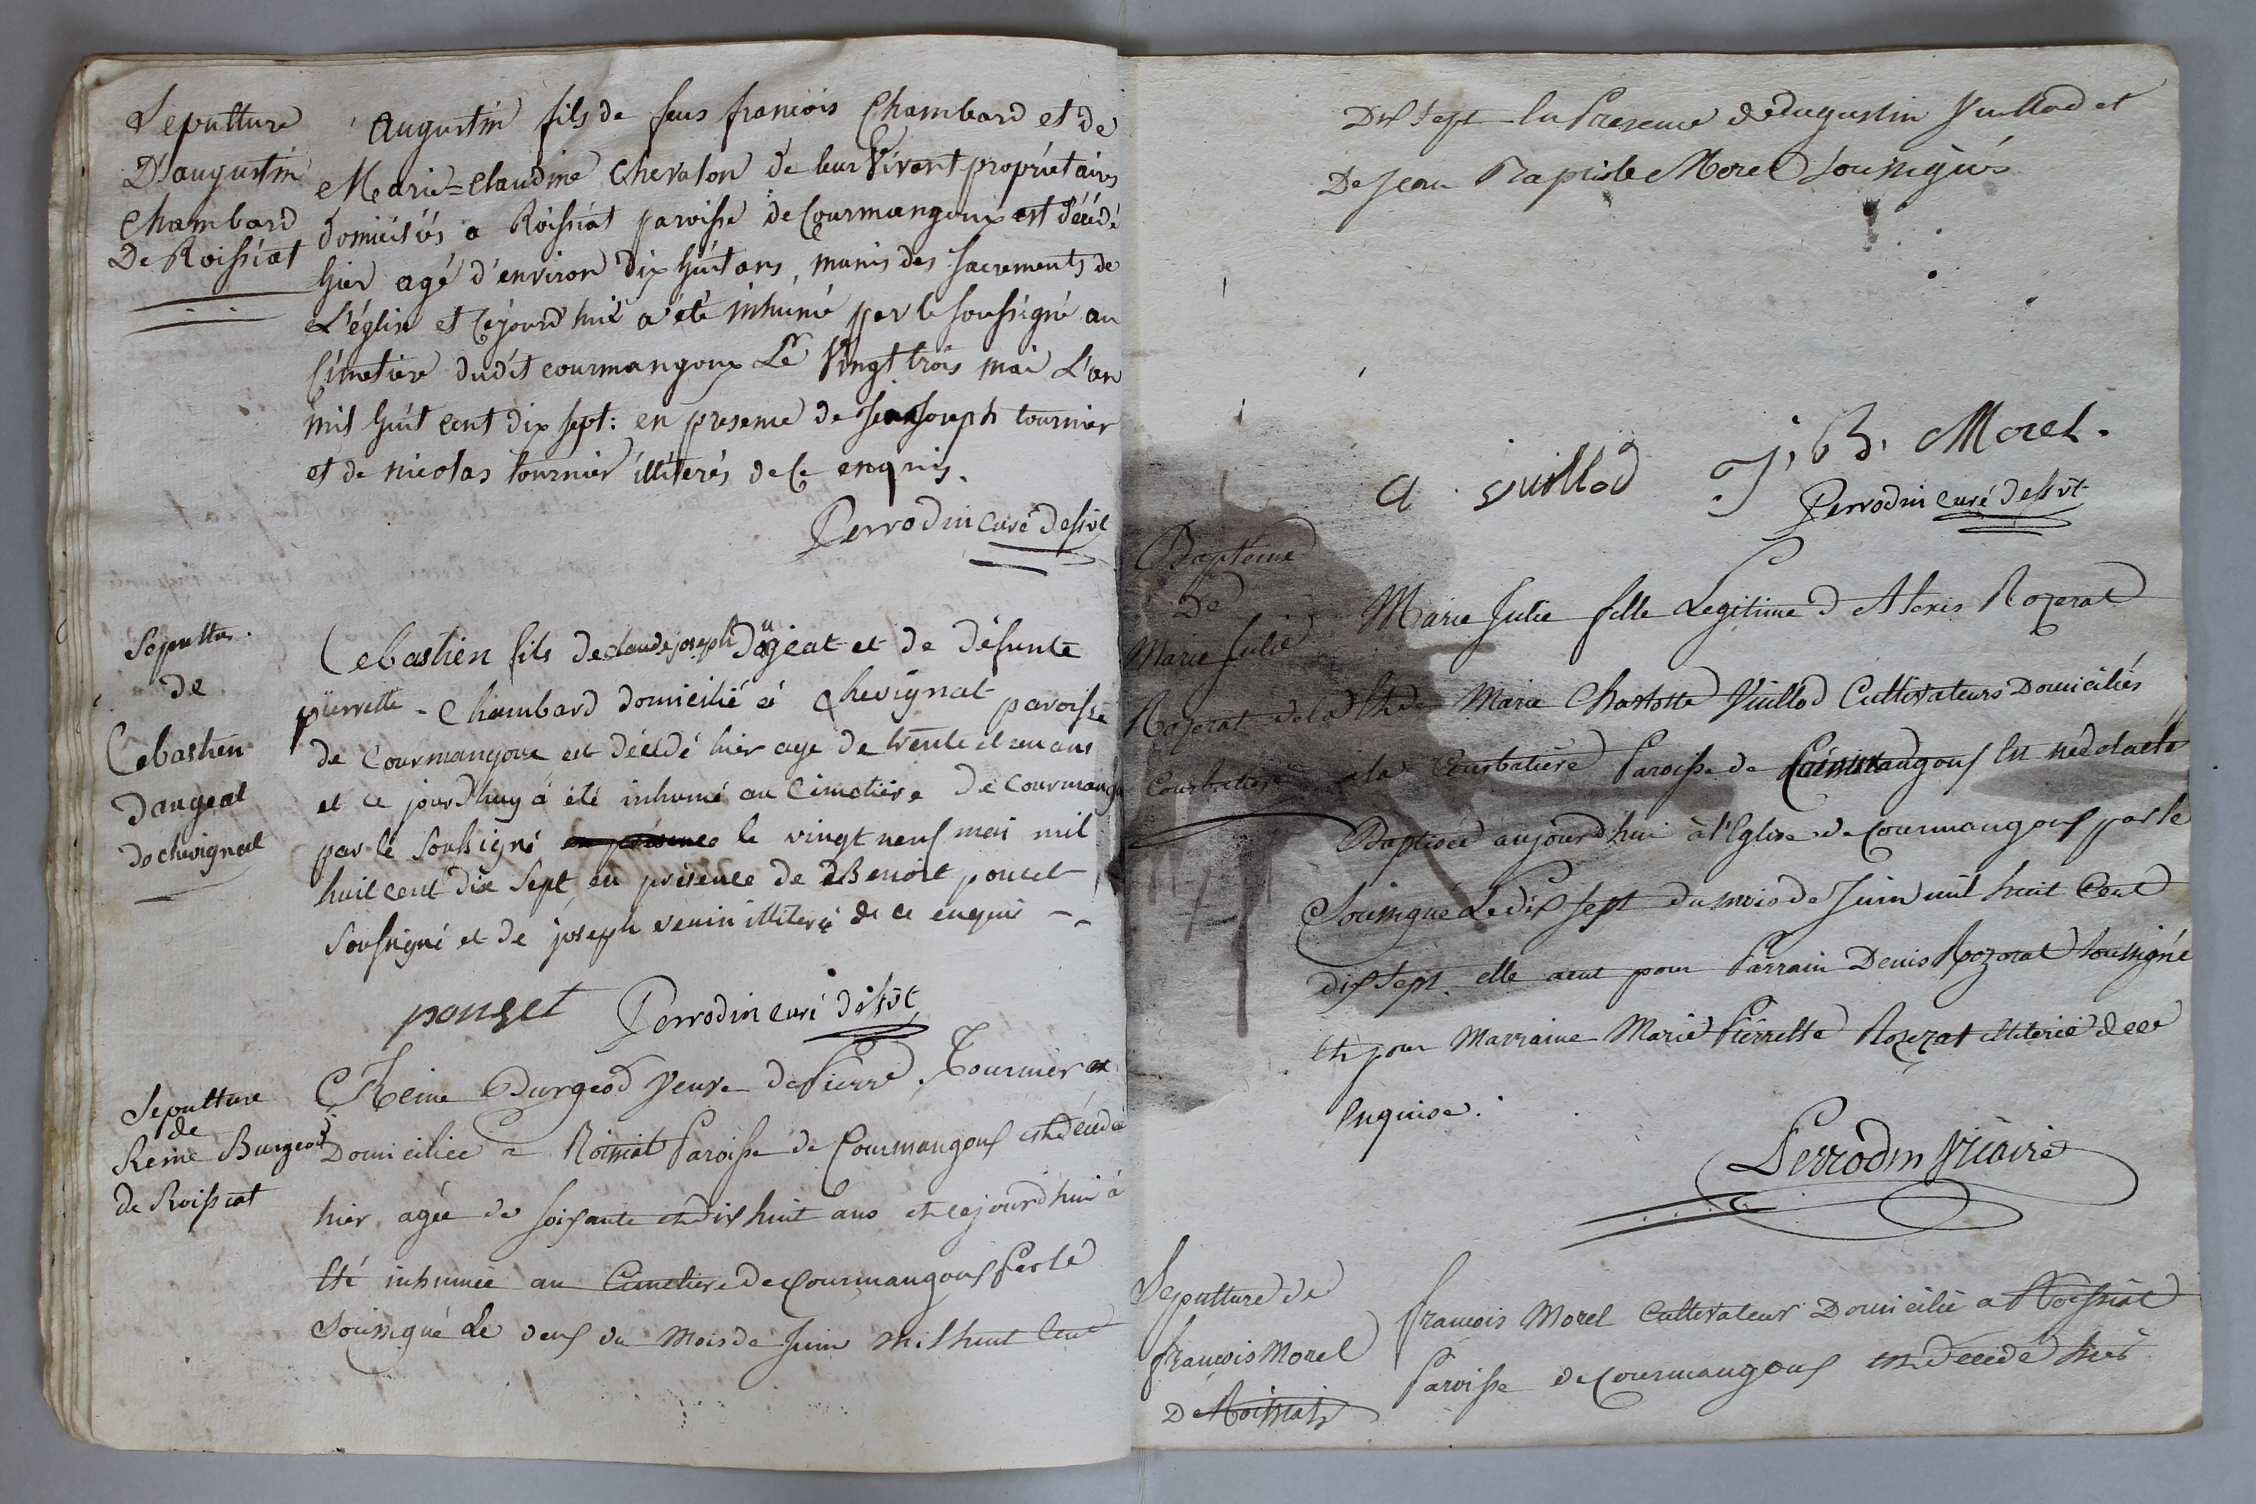 Sepulture
D'augustin
Chambard
De Roissiat
Augustin fils de feus francois Chambard et de
Marie=Claudine Chevalon de leur Vivant propriétaires
domiciliés a Roissiat paroisse de Courmangoux est décédé
hier agé d'environ dix huit ans, munis des sacrements de
L'église et Cejourd'hui a été inhumé par le soussigné au
Cimetiere dudit courmangoux Le Vingt trois mai L'an
mil huit cent dix sept: en presence de Joseph tournier
et de nicolas tournier illiterés de Ce enquis.
Perrodin curé dessvt
Sepultur.
de
Cebastien
daugeat
de chevignat
Cebastien fils de claude joseph daugeat et de défunte
pierrette Chambard domicilié à Chevignat paroisse
de Courmangoux est décédé hier age de trente et un ans
et ce jourd'huy a été inhumé au Cimetiere de Courmangou
par le Soussigné en présence le vingt neuf mai mil
huit cent dix Sept en présence de Benoit poncet
Soussigné et de joseph venin illiteré de ce enquis
ponset Perrodin curé dessvt
Sepulture
de
Reine Burgeod
de Roissiat
Reine Burgeod Veuve de Pierre Tournier
Domiciliée a Roissiat Paroisse de Courmangoux est décédée
hier agée de soixante et dix huit ans et cejourd'hui à
Eté inhumée au Cimetiere de Courmangoux Par le
Soussigné Le deux du Mois de Juin Mil huit Cent
Dix sept En Presence de augustin Vuillod et
De Jean Baptiste Morel Soussignés
a vuillod J. B. Morel.
Perrodin curé dessvt
Baptême
De
Marie Julie
Rozerat de la
Courbatiere
Marie Julie fille Legitime d Alexis Rozerat
Et de Marie Charlotte Vuillod Cultivateurs Domiciliés
a la Courbatière Paroisse de Courmangoux En née
Baptisée aujourd'hui à l'Eglise de Courmangoux par le
Soussigné Le Dix sept du mois de Juin mil huit Cent
dix sept elle a eu pour Parrain Denis Rozerat Soussigné
Et pour Marraine Marie Pierrette Rozerat illiterée de ce
Enquise.
Perrodin Vicaire
Sepulture de
francois Morel
De Roissiat
francois Morel Cultivateur Domicilié a Roissiat
Paroisse de Courmangoux est decedé hier